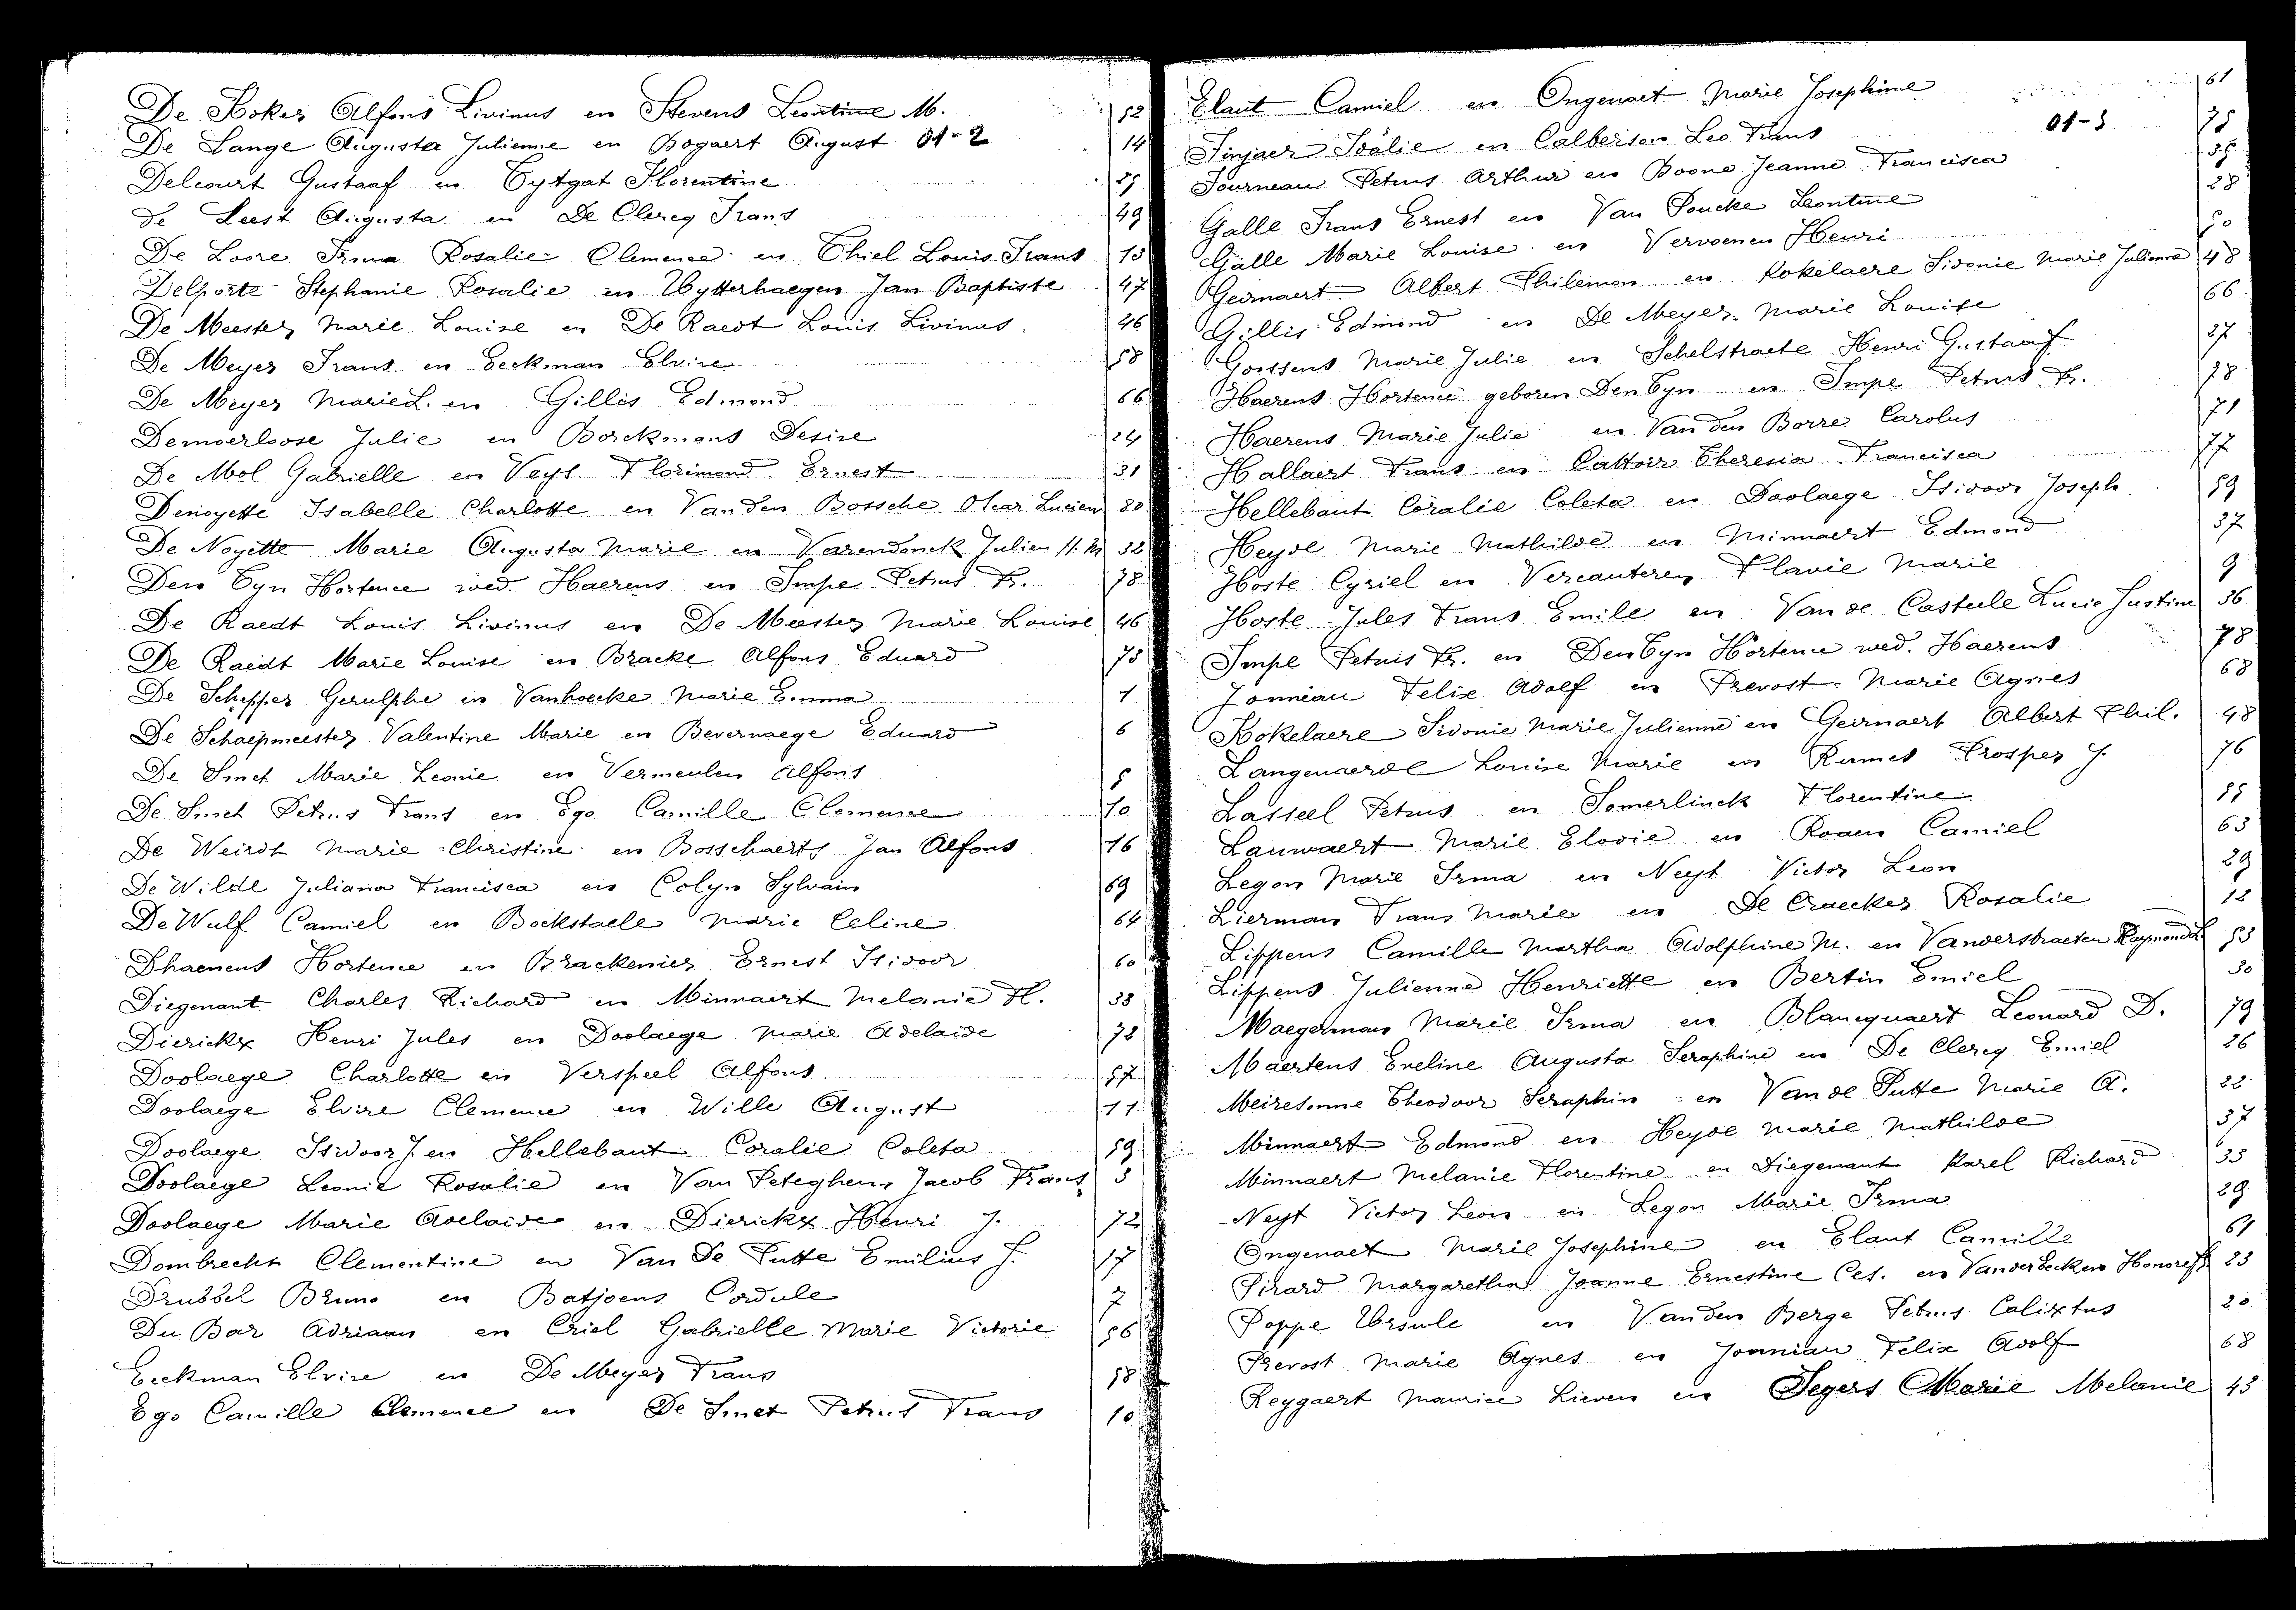 De Koker Alfons Livinus en Stevens Leontine M. 52
De Lange Augusta Julienne en Bogaert August 01-2 14
Delcourt Gustaaf en Tytgat Florentine 25
De Leest Augusta en De Clercq Frans 49
De Loore Irma Rosalie Clemence en Thiel Louis Frans 13
Delporte Stephanie Rosalie en Uytterhaegen Jan Baptiste 47
De Meester Marie Louise en De Raedt Louis Livinus 46
De Meyer Frans en Eeckman Elvire 58
De Meyer Marie L. en Gillis Edmond 66
Demoerloose Julie en Borckmans Desire 24
De Mol Gabrielle en Veys Florimond Ernest 31
Denoyette Isabelle Charlotte en Van den Bossche Oscar Lucien 80
De Noyette Marie Augusta Marie en Varendonck Julien H. M 32
Den Tyn Hortence wed. Haerens en Impe Petrus Fr. 78
De Raedt Louis Livinus en De Meester Marie Louise 46
De Raedt Marie Louise en Bracke Alfons Eduard 73
De Schepper Gerulphe en Vanhoecke Marie Emma 1
De Schaepmeester Valentine Marie en Bevernaege Eduard 6
De Smet Marie Leonie en Vermeulen Alfons 5
De Smet Petrus Frans en Ego Camille Clemence 10
De Weirdt Marie Christine en Bosschaerts Jan Alfons 16
De Wilde Juliana Francisca en Colyn Sylvain 69
De Wulf Camiel en Bockstaele Marie Celine 64
Dhaenens Hortence en Brackenier Ernest Isidoor 60
Diegenant Charles Richard en Minnaert Melanie Fl. 33
Dierickx Henri Jules en Doolaege Marie Adelaide 72
Doolaege Charlotte en Verspeel Alfons 57
Doolaege Elvire Clemence en Wille August 11
Doolaege Isidoor J. en Hellebaut Coralie Coleta 59
Doolaege Leonie Rosalie en Van Peteghem Jacob Frans 3
Doolaege Marie Adelaide en Dierickx Henri J. 72
Dombrecht Clementine en Van De Putte Emilius F. 17
Drubbel Bruno en Batjoens Cordule 7
Du Bar Adriaan en Criel Gabrielle Marie Victorie 56
Eeckman Elvire en De Meyer Frans 58
Ego Camille Clemence en De Smet Petrus Frans 10
Elaut Camiel en Ongenaet Marie Josephine 61
Finjaer Idalie en Calberson Leo Frans 01-3 75
Fourneau Petrus Arthur en Boone Jeanne Francisca 35
Galle Frans Ernest en Van Poucke Leontine 28
Galle Marie Louise en Vervoenen Henri 50
Geirnaert Albert Philemon en Kokelaere Sidonie Marie Julienne 48
Gillis Edmond en De Meyer Marie Louise 66
Goossens Marie Julie en Schelstraete Henri Gustaaf 27
Haerens Hortence geboren Den Tyn en Impe Petrus Fr. 78
Haerens Marie Julie en Van den Borre Carolus 71
Hallaert Frans en Cattoir Theresia Francisca 77
Hellebaut Coralie Coleta en Doolaege Isidoor Joseph 59
Heyde Marie Mathilde en Minnaert Edmond 37
Hoste Cyriel en Vercauteren Flavie Marie 9
Hoste Jules Frans Emile en Van de Casteele Lucie Justine 36
Impe Petrus Fr. en Den Tyn Hortence wed. Haerens 78
Jonniau Felix Adolf en Prevost Marie Agnes 68
Kokelaere Sidonie Marie Julienne en Geirnaert Albert Phil. 48
Langenaerde Louise Marie en Rumes Prosper J. 76
Lasseel Petrus en Somerlinck Florentine 55
Lauwaert Marie Elodie en Roden Camiel 63
Legon Marie Irma en Neyt Victor Leon 29
Lierman Frans Marie en De Craecker Rosalie 12
Lippens Camille Martha Adolphine M. en Vanderstraeten Raymond L. 53
Lippens Julienne Henriette en Bertin Emiel 30
Maegerman Marie Irma en Blancquaert Leonard D. 79
Maertens Eveline Augusta Seraphine en De Clercq Emiel 26
Meiresonne Theodoor Seraphin en Van de Putte Marie A. 22
Minnaert Edmond en Heyde Marie Mathilde 37
Minnaert Melanie Florentine en Diegenant Karel Richard 33
Neyt Victor Leon en Legon Marie Irma 29
Ongenaet Marie Josephine en Elaut Camille 61
Pirard Margaretha Joanne Ernestine Ces. en Vanderbeeken Honoré 23
Poppe Ursule en Van den Berge Petrus Calixtus 20
Prevost Marie Agnes en Jonniau Felix Adolf 68
Reygaert Maurice Lieven en Segers Marie Melanie 43